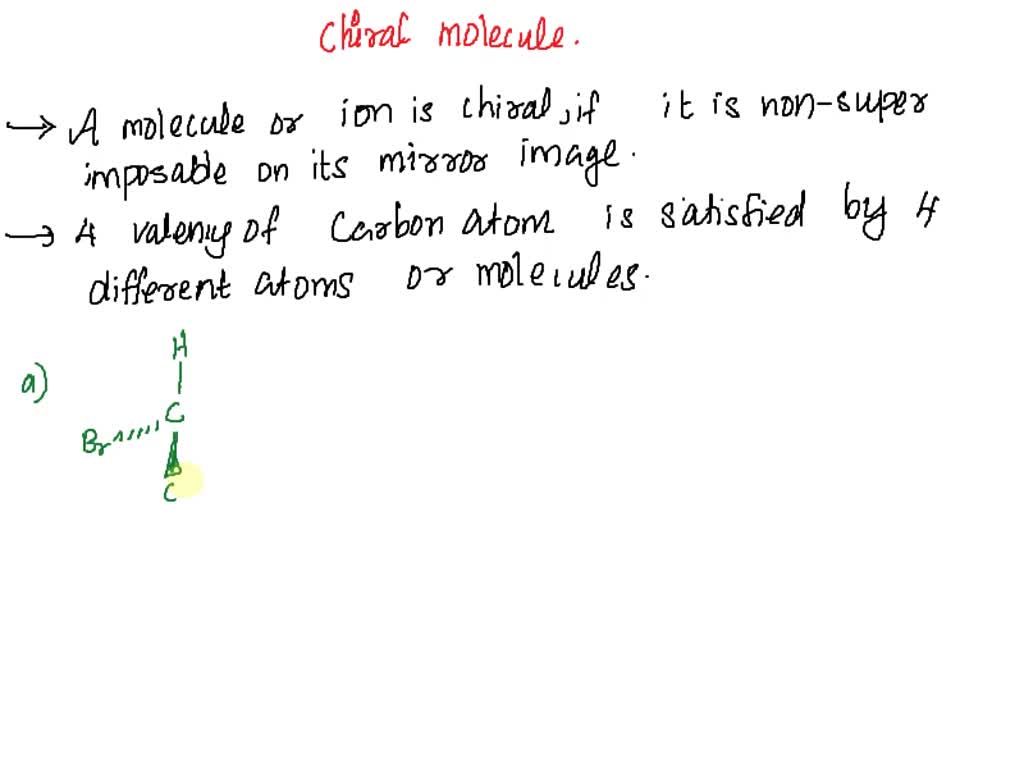 Chiral molecule.
→ A molecule or ion is chiral, if it is non-super
imposable on its mirror image.
→ 4 valeniy of Carbon atom is satisfied by 4
different atoms or molecules.
H
a)
C
Br
C